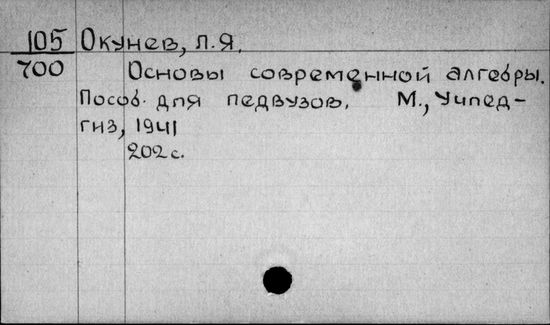 105 Окунев, Л.Я.
700 Основы современной алгебры.
Пособ. для педвузов. М., Учпед-
гиз, 1941
202 с.